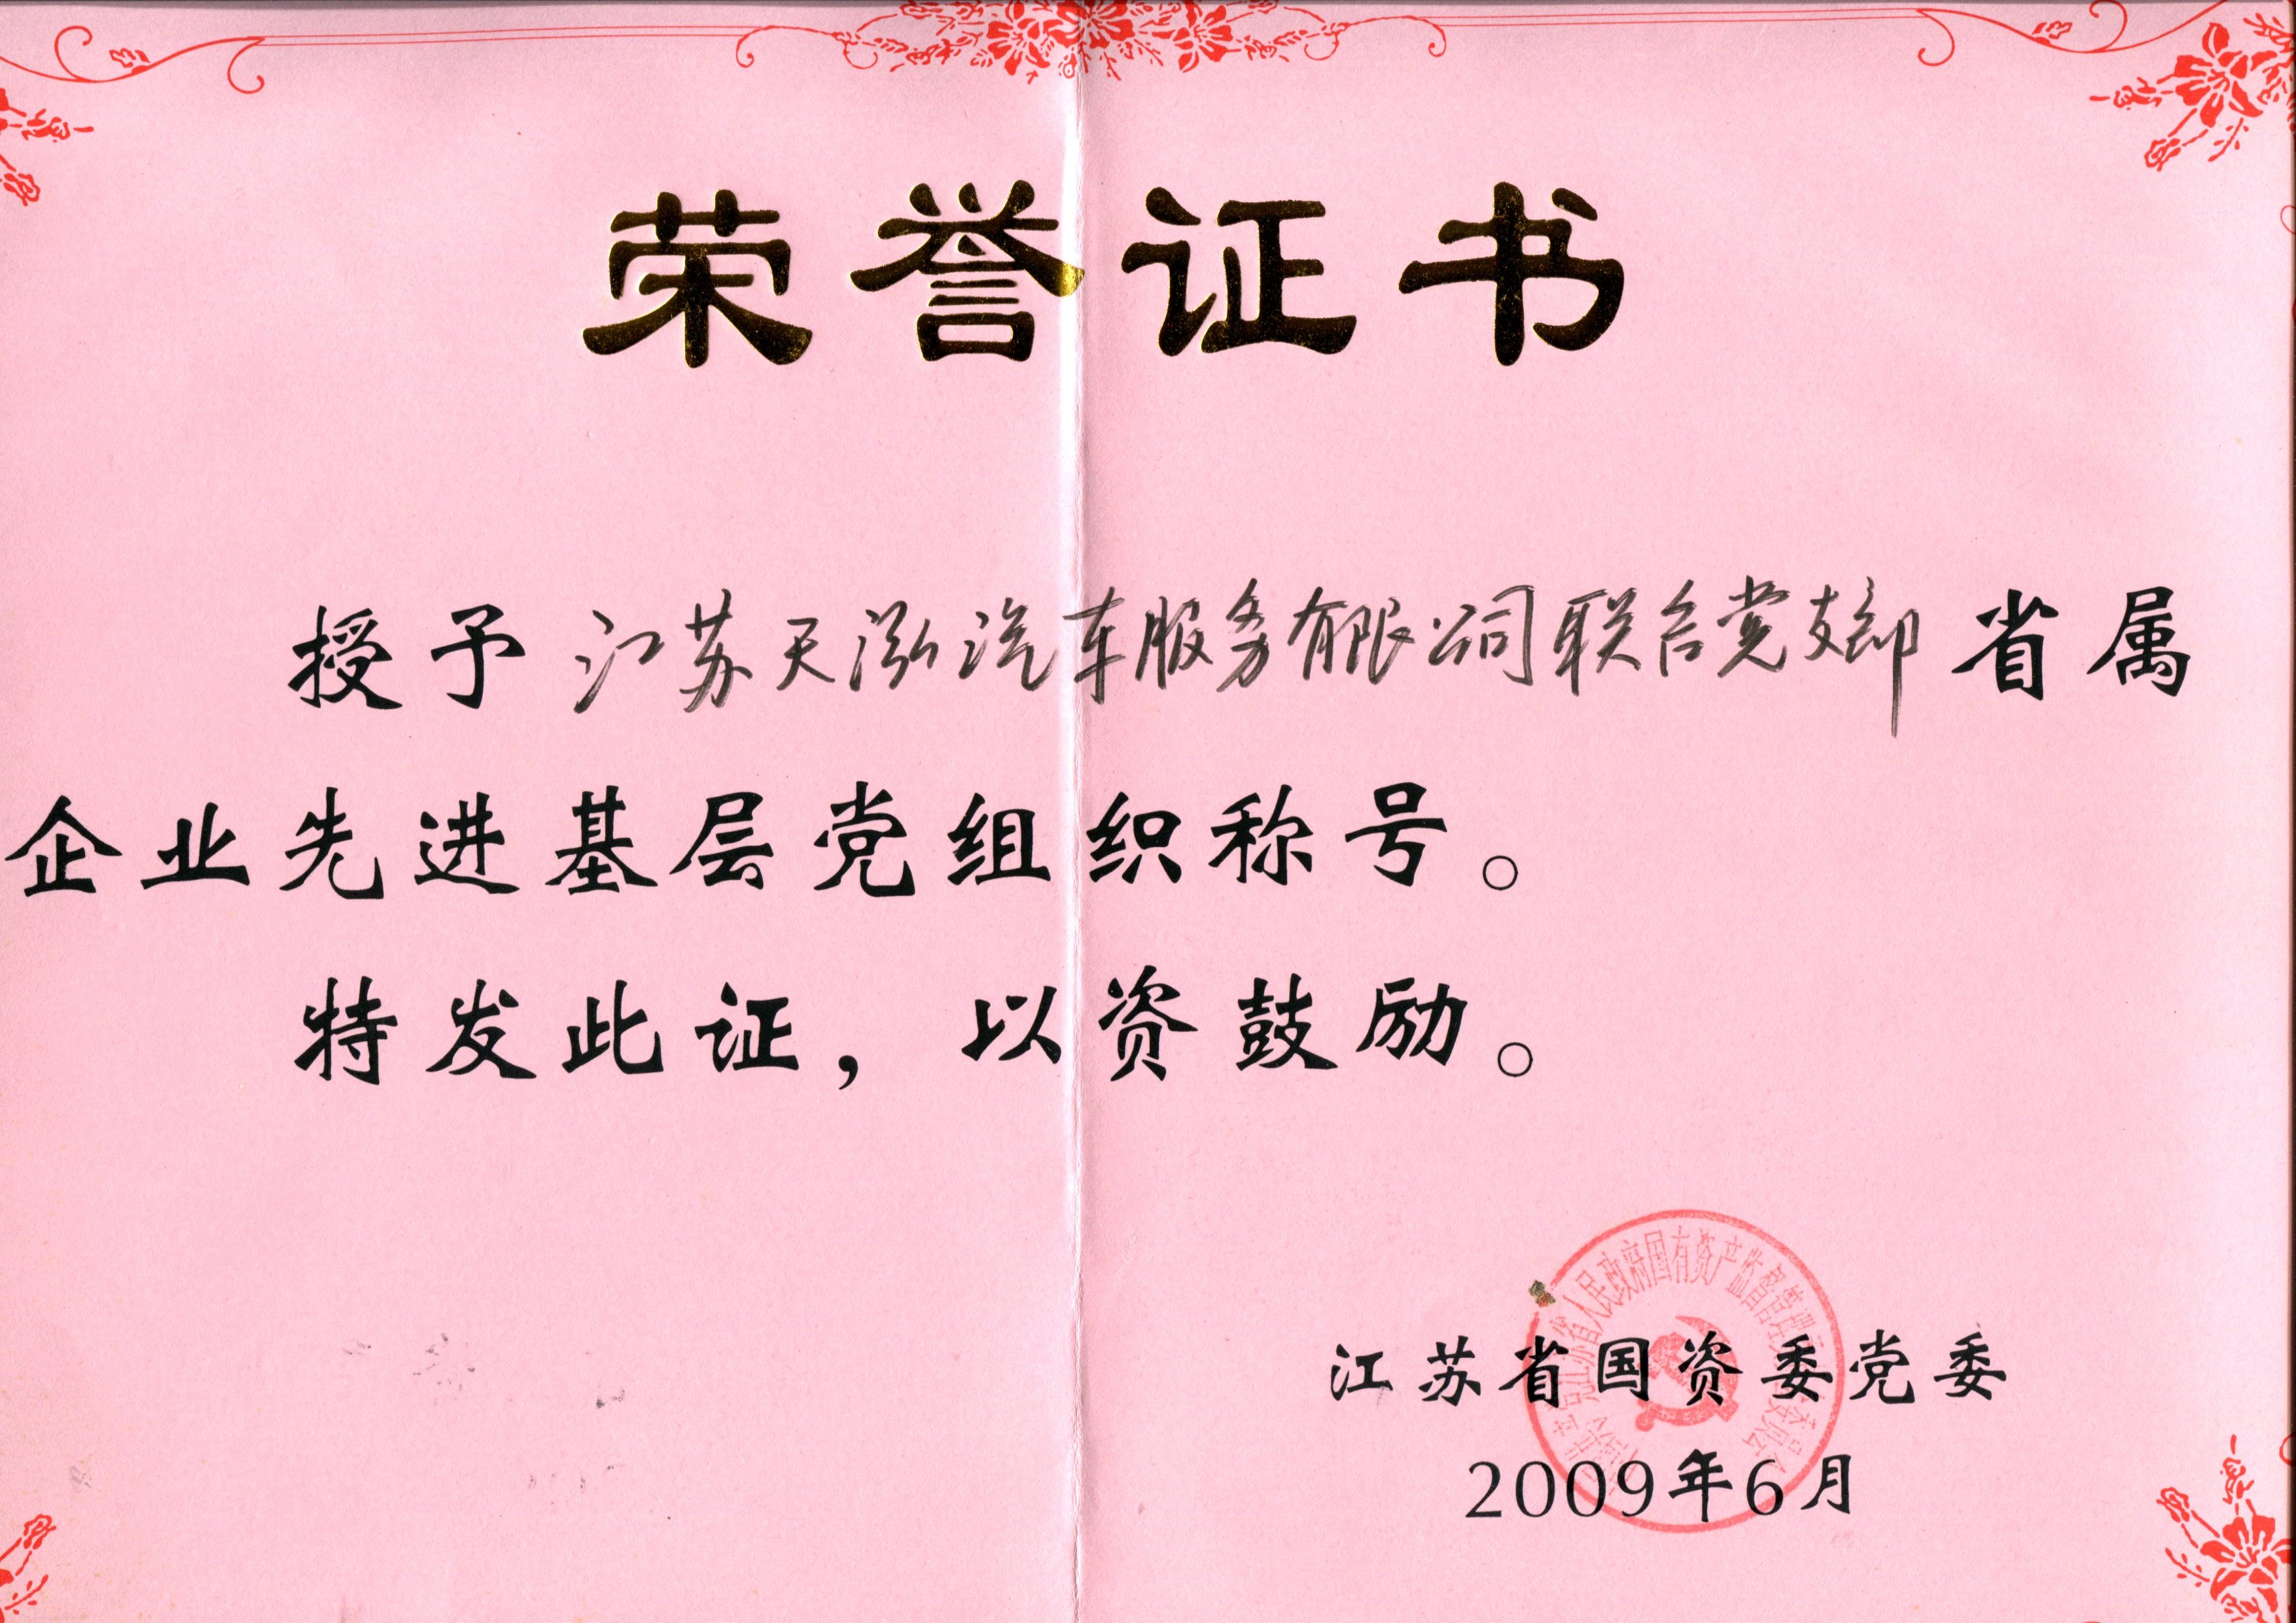 荣誉证书
授予江苏天泓汽车服务有限公司联合党支部省属
企业先进基层党组织称号。
特发此证，以资鼓励。
江苏省人民政府国有资产监督管理
江苏省国资委党委
2009年6月